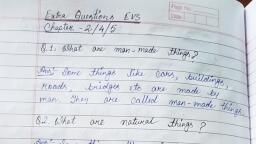 Page No.
Date
Extra Questions EVS
Chapter - 2/4/5
Q.1. What are man-made things?
Ans: Some things like cars, buildings,
roads, bridges etc are made by
man. They are called man-made things.
Q.2. What are natural things?